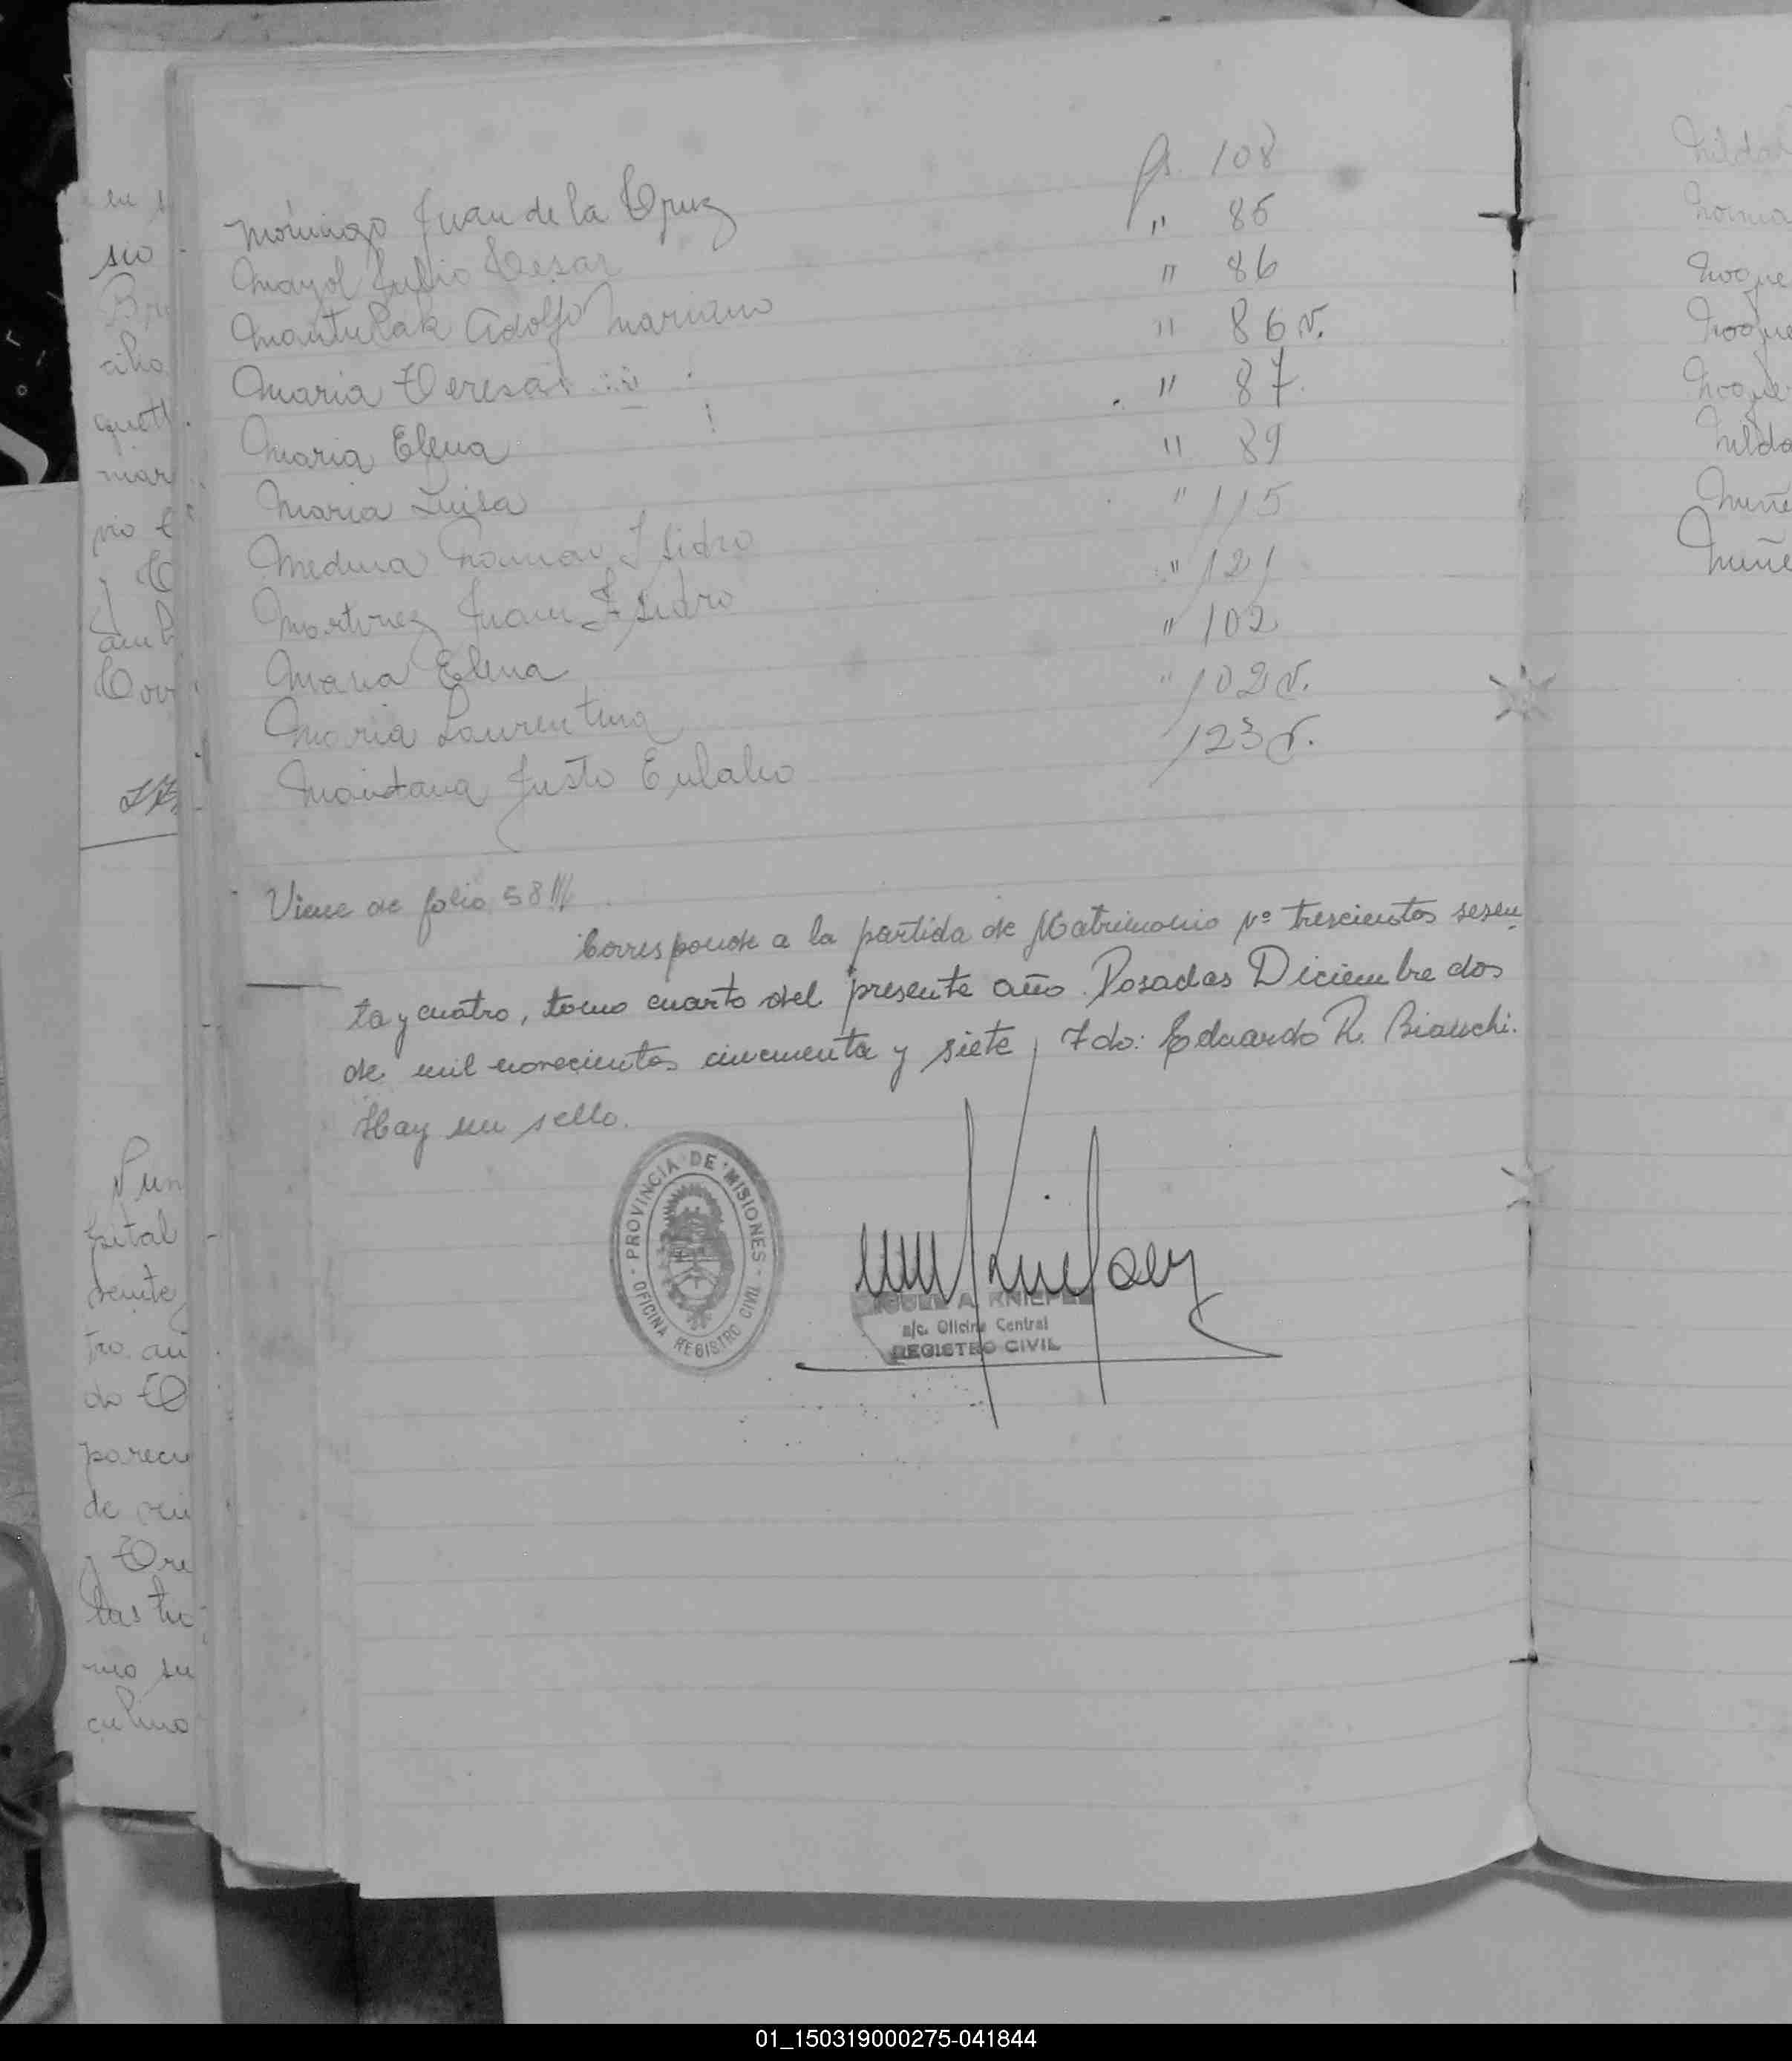 Mómingo Juan de la Cruz fs. 108
Mayol Julio Cesar " 85
Mantulak Adolfo Mariano " 86
Maria Teresa " 86 v.
Maria Elena " 87
Maria Luisa " 89
Medina Roman Isidro " 115
Martinez Juan Isidro " 121
Maria Elena " 102
Maria Laurentina " 102 v.
Maidana Justo Eulalio 123 v.
Viene de folio 58
Corresponde a la partida de Matrimonio Nº trescientos sesen
ta y cuatro, tomo cuarto del presente año. Posadas Diciembre dos
de mil novecientos cincuenta y siete, Fdo: Eduardo R. Bianchi.
Hay un sello.
PROVINCIA DE MISIONES
OFICINA REGISTRO CIVIL
MIGUEL A. KNIEPL
a/c. Oficina Central
REGISTRO CIVIL
en
sio
ciha
mar
pital
parecu
de
culino
Nilda
Norma
Roque
Roque
Roque
Nilda
01_150319000275-041844